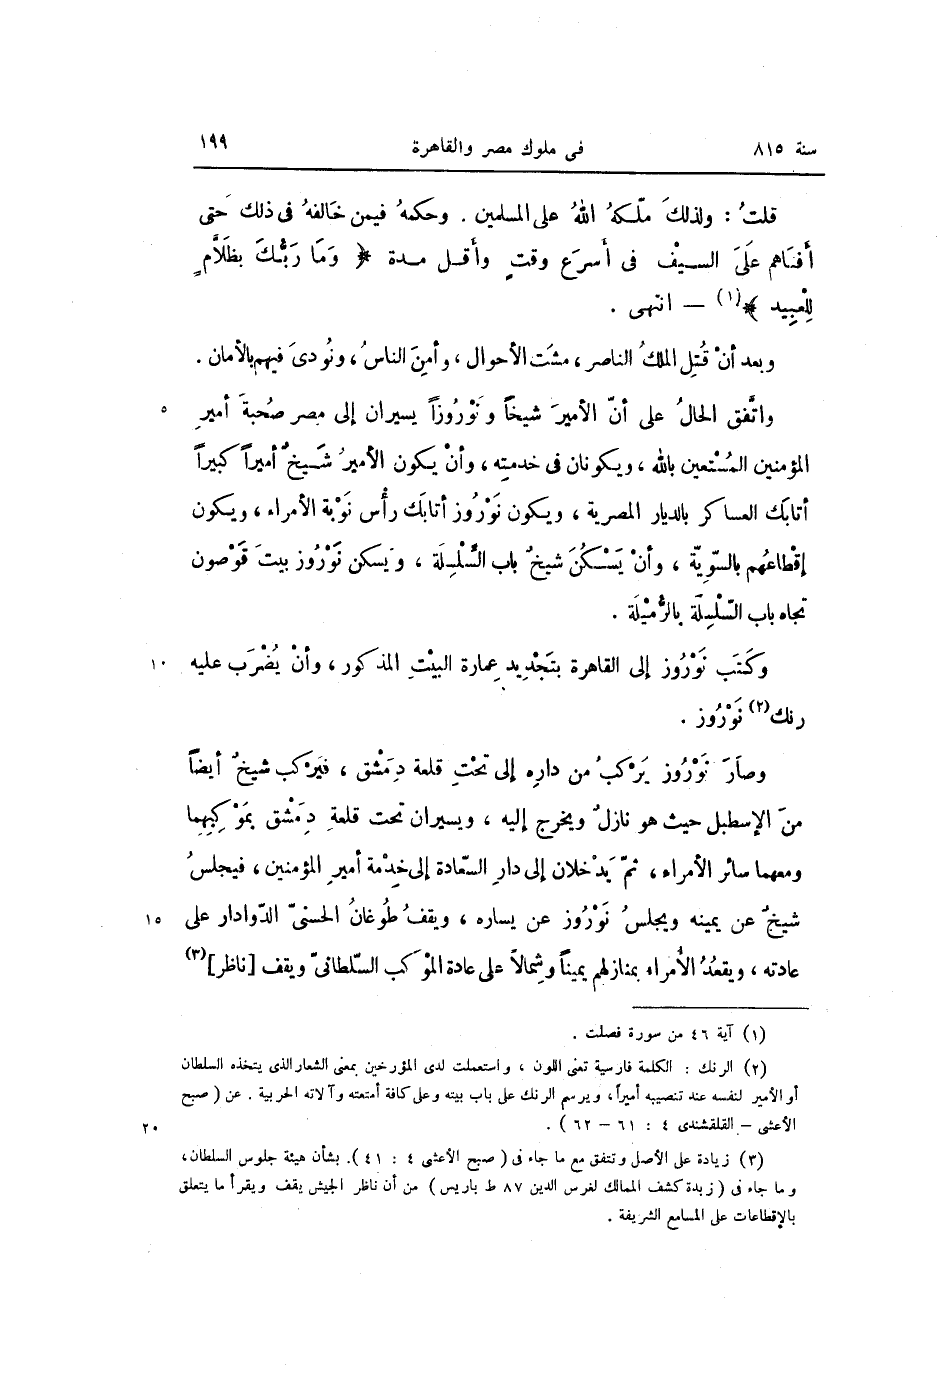 سنة ٨١٥ فى ملوك مصر والقاهرة ١٩٩
قلتُ : ولذلكَ ملّكهُ اللهُ على المسلمين . وحكمهُ فيمن خَالفهُ فى ذلك حَتى
أَفنَاهم عَلَىَ السيْف فى أَسرَع وقتٍ وأَقل مدة ﴿ وَمَا رَبُّكَ بظَلَّامٍ
لِلْعبِيد ﴾(١) – انتهى .
وبعد أنْ قُتِل الملكُ الناصر ، مشَت الأحوال ، وأَمنِ الناسُ ، ونُودىَ فيهم بالأمان .
واتَّفق الحالُ على أنّ الأميرَ شيخًا ونَوْرُوزاً يسيران إلى مصر صُحبةَ أميرِ ٥
المؤمنين المُسْتعين بالله ، ويكونان فى خدمتِه ، وأنْ يكون الأميرُ شَيخٌ أميراً كبيراً
أتابَك العساكر بالديار المصرية ، ويكون نَوْرُوز أتابَك رأْس نَوْبة الأمراء ، ويكون
إقْطاعُهم بالسّويّة ، وأنْ يَسْكُنَ شيخٌ باب السِّلْسِلَة ، ويَسكن نَوْرُوز بيتَ قَوْصون
تجاه باب السِّلْسِلَة بالرُّمَيْلَة .
وكَتَب نَوْرُوز إلى القاهرة بتَجْدِيد عِمارة البيْتِ المذكور ، وأنْ يُضْرَب عليه ١٠
رنك(٢) نَوْرُوز .
وصاَرَ نَوْرُوز يَرْكبُ من دارِه إلى تحْتِ قلعة دِمَشْق ، فيَرْكب شيخٌ أيضاً
منَ الإسطبل حيث هو نازلٌ ويخرج إليه ، ويسيران تحت قلعةِ دِمَشْق بمَوْكِبِهِما
ومعهما سائر الأمراء ، ثمّ يَدْخلان إلى دارِ السّعادة إلى خِدْمة أميرِ المؤمنين ، فيجلسُ
شيخٌ عن يمينه ويجلسُ نَوْرُوز عن يساره ، ويقفُ طُوغانُ الحسنىّ الدّوادار على ١٥
عادته ، ويقعُدُ الأُمراء بمنازلهم يميناً وشِمالاً على عادة المَوْكب السّلطانىّ ويقف [ناظر](٣)
(١) آية ٤٦ من سورة فصلت .
(٢) الرنك : الكلمة فارسية تعنى اللون ، واستعملت لدى المؤرخين بمعنى الشعار الذى يتخذه السلطان
أو الأمير لنفسه عند تنصيبه أميراً ، ويرسم الرنك على باب بيته وعلى كافة أمتعته وآلاته الحربية . عن ( صبح
الأعشى – القلقشندى ٤ : ٦١ – ٦٢ ) . ٢٠
(٣) زيادة على الأصل وتتفق مع ما جاء فى ( صبح الأعشى ٤ : ٤١ ) . بشأن هيئة جلوس السلطان ،
وما جاء فى ( زبدة كشف الممالك لغرس الدين ٨٧ ط باريس ) من أن ناظر الجيش يقف ويقرأ ما يتعلق
بالإقطاعات على المسامع الشريفة .